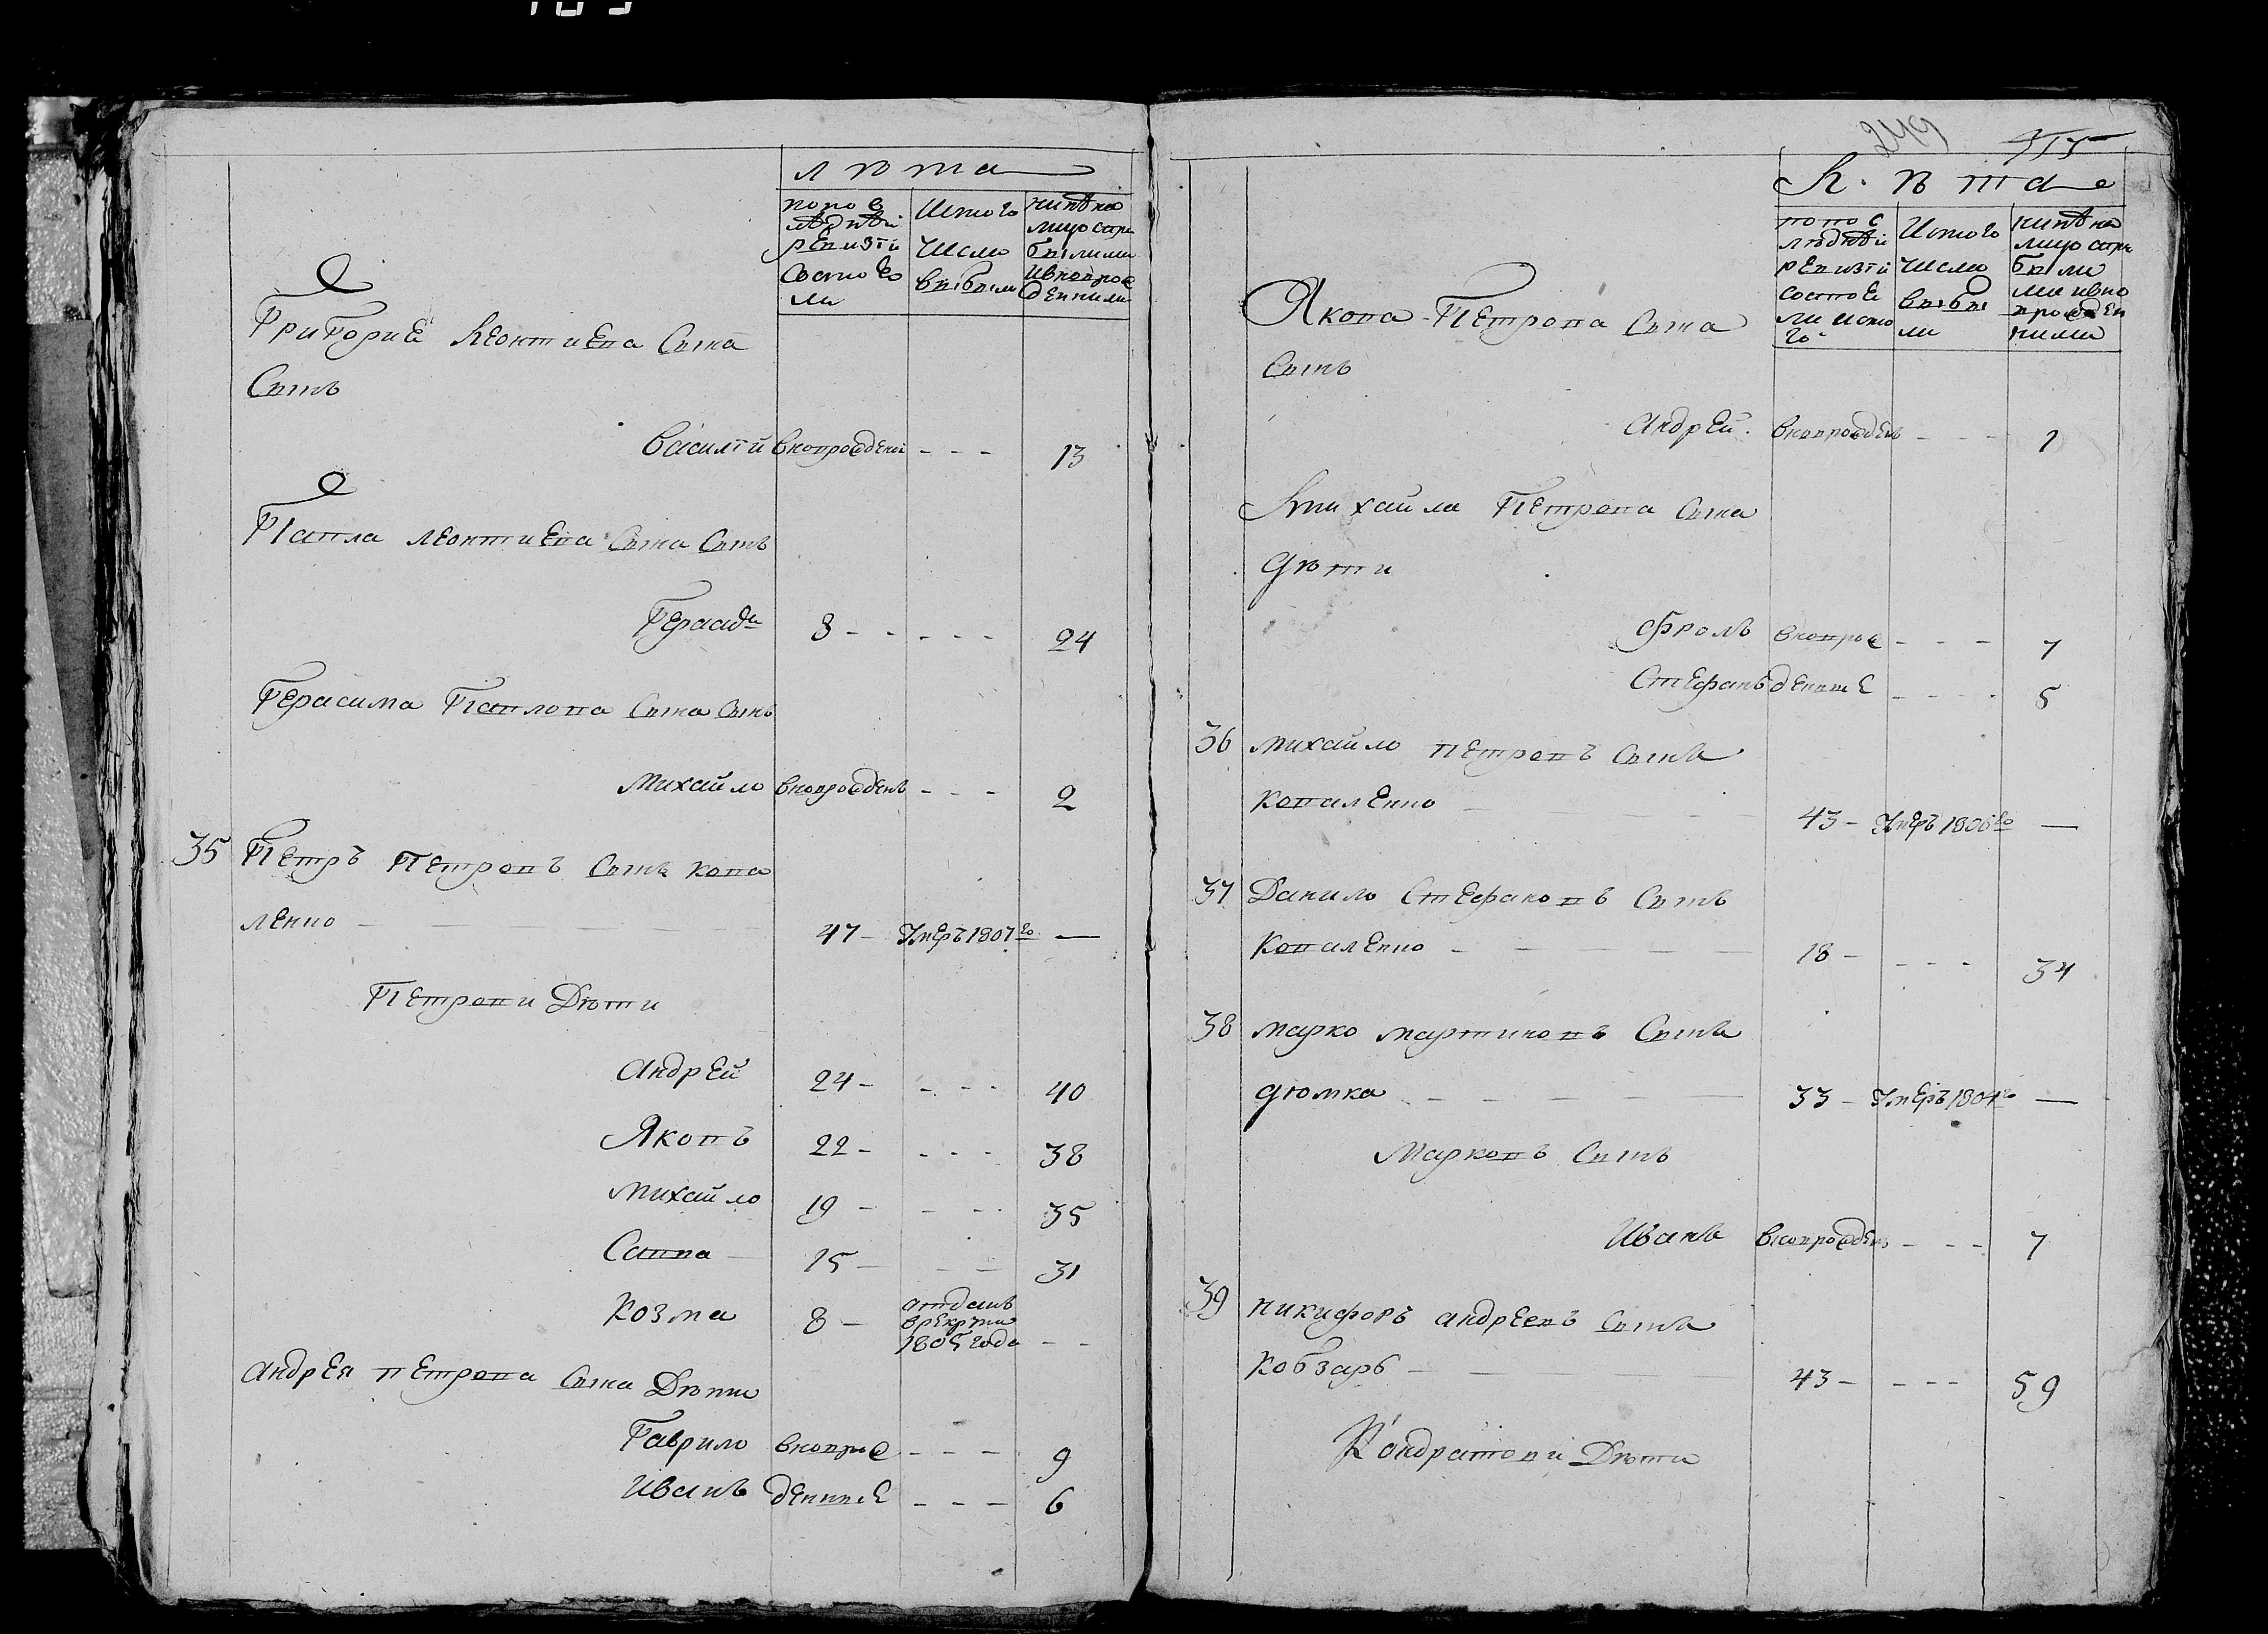 лѣта
попос лѣдней ревизіи состояло ли
Истого числа выбыли
нинѣ на лицо съпри былими ивнопрож денними
Григорие Леонтиева Сына
Сынъ
Василій внопрожденъ - - - 13
Павла леонтиева Сына Сынъ
Герасим 8 - - - - - 24
Герасима Павлова Сына Сынъ
Михайло внопрожденъ - - - 2
35 Петръ Петровъ Сынъ кова
ленко - 47 - Умеръ 1807го —
Петрови Дѣти
Андрей 24 - - - - 40
Яковъ 22 - - - - 38
Михайло 19 - - - - 35
Савва 15 - - - 31
Козма 8 - отданъ
врекрути
1805 года - -
Андрея петрова Сына Дѣти
Гаврило внопрож - - - 9
Иванъ денніе - - - 6
249
415
Лѣта
попос лѣдней ревизіи состое ли исто го
Истого числа выбы ли
нинѣ на лицо съпри были ми ивно прожден ними
Якова Петрова Сына
Сынъ
Андрей внопрожденъ - - - 1
Михайла Петрова Сына
дѣти
Фролъ внопрож - - - 7
Стефанъ денніе - - - - 5
36 Михайло петровъ Сынъ
коваленко - 43 - Умеръ 1806го —
37 Данило Стефановъ Сынъ
Коваленко - 18 - - - - 34
38 Марко мартиновъ Сынъ
дюмка - 33 - Умеръ 1804го —
Марковъ Сынъ
Иванъ внопрожденъ - - - 7
39 Никифоръ андреевъ Сынъ
Кобзарь - 43 - - - - 59
Кондратови Дѣти